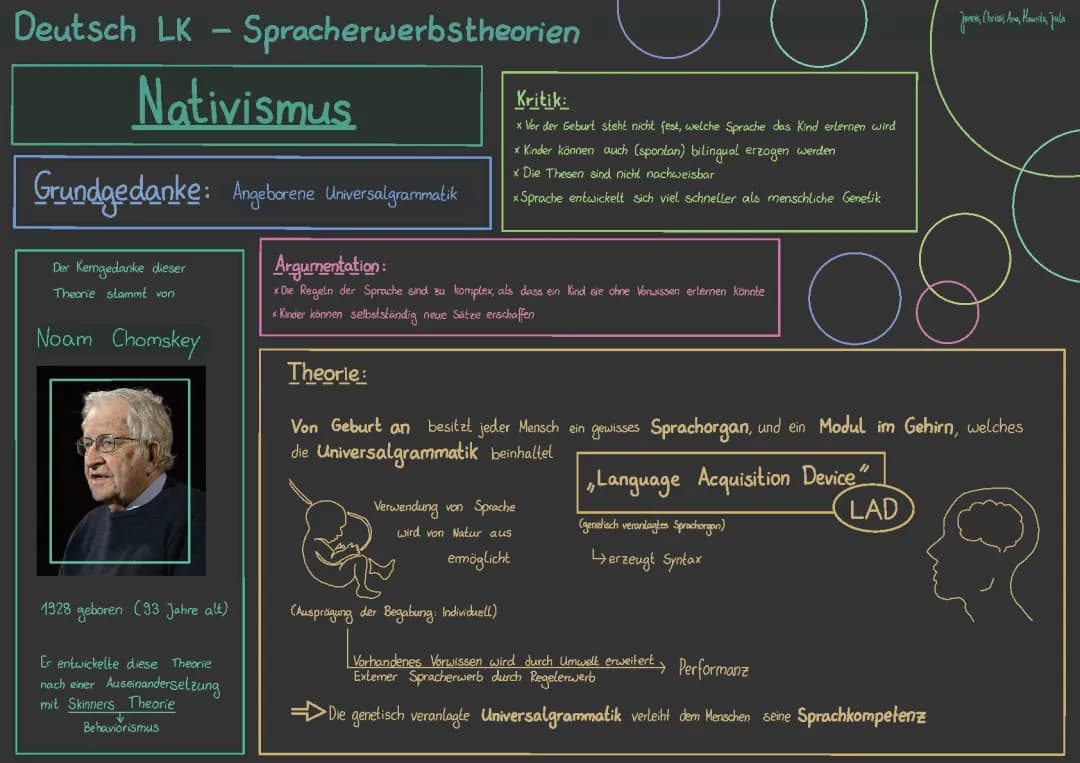 Deutsch LK – Spracherwerbstheorien
Nativismus
Grundgedanke: Angeborene Universalgrammatik
Kritik:
x Vor der Geburt steht nicht fest, welche Sprache das Kind erlernen wird
x Kinder können auch (spontan) bilingual erzogen werden
x Die Thesen sind nicht nachweisbar
x Sprache entwickelt sich viel schneller als menschliche Genetik
Der Kerngedanke dieser
Theorie stammt von
Noam Chomskey
1928 geboren (93 Jahre alt)
Er entwickelte diese Theorie
nach einer Auseinandersetzung
mit Skinners Theorie
Behaviorismus
Argumentation:
x Die Regeln der Sprache sind zu komplex, als dass ein Kind sie ohne Vorwissen erlernen könnte
x Kinder können selbstständig neue Sätze erschaffen
Theorie:
Von Geburt an besitzt jeder Mensch ein gewisses Sprachorgan, und ein Modul im Gehirn, welches
die Universalgrammatik beinhaltet
Verwendung von Sprache
wird von Natur aus
ermöglicht
(Ausprägung der Begabung: Individuell)
„Language Acquisition Device“
LAD
(genetisch veranlagtes Sprachorgan)
↳ erzeugt Syntax
Vorhandenes Vorwissen wird durch Umwelt erweitert
Externer Spracherwerb durch Regelerwerb
→ Performanz
⇒ Die genetisch veranlagte Universalgrammatik verleiht dem Menschen seine Sprachkompetenz